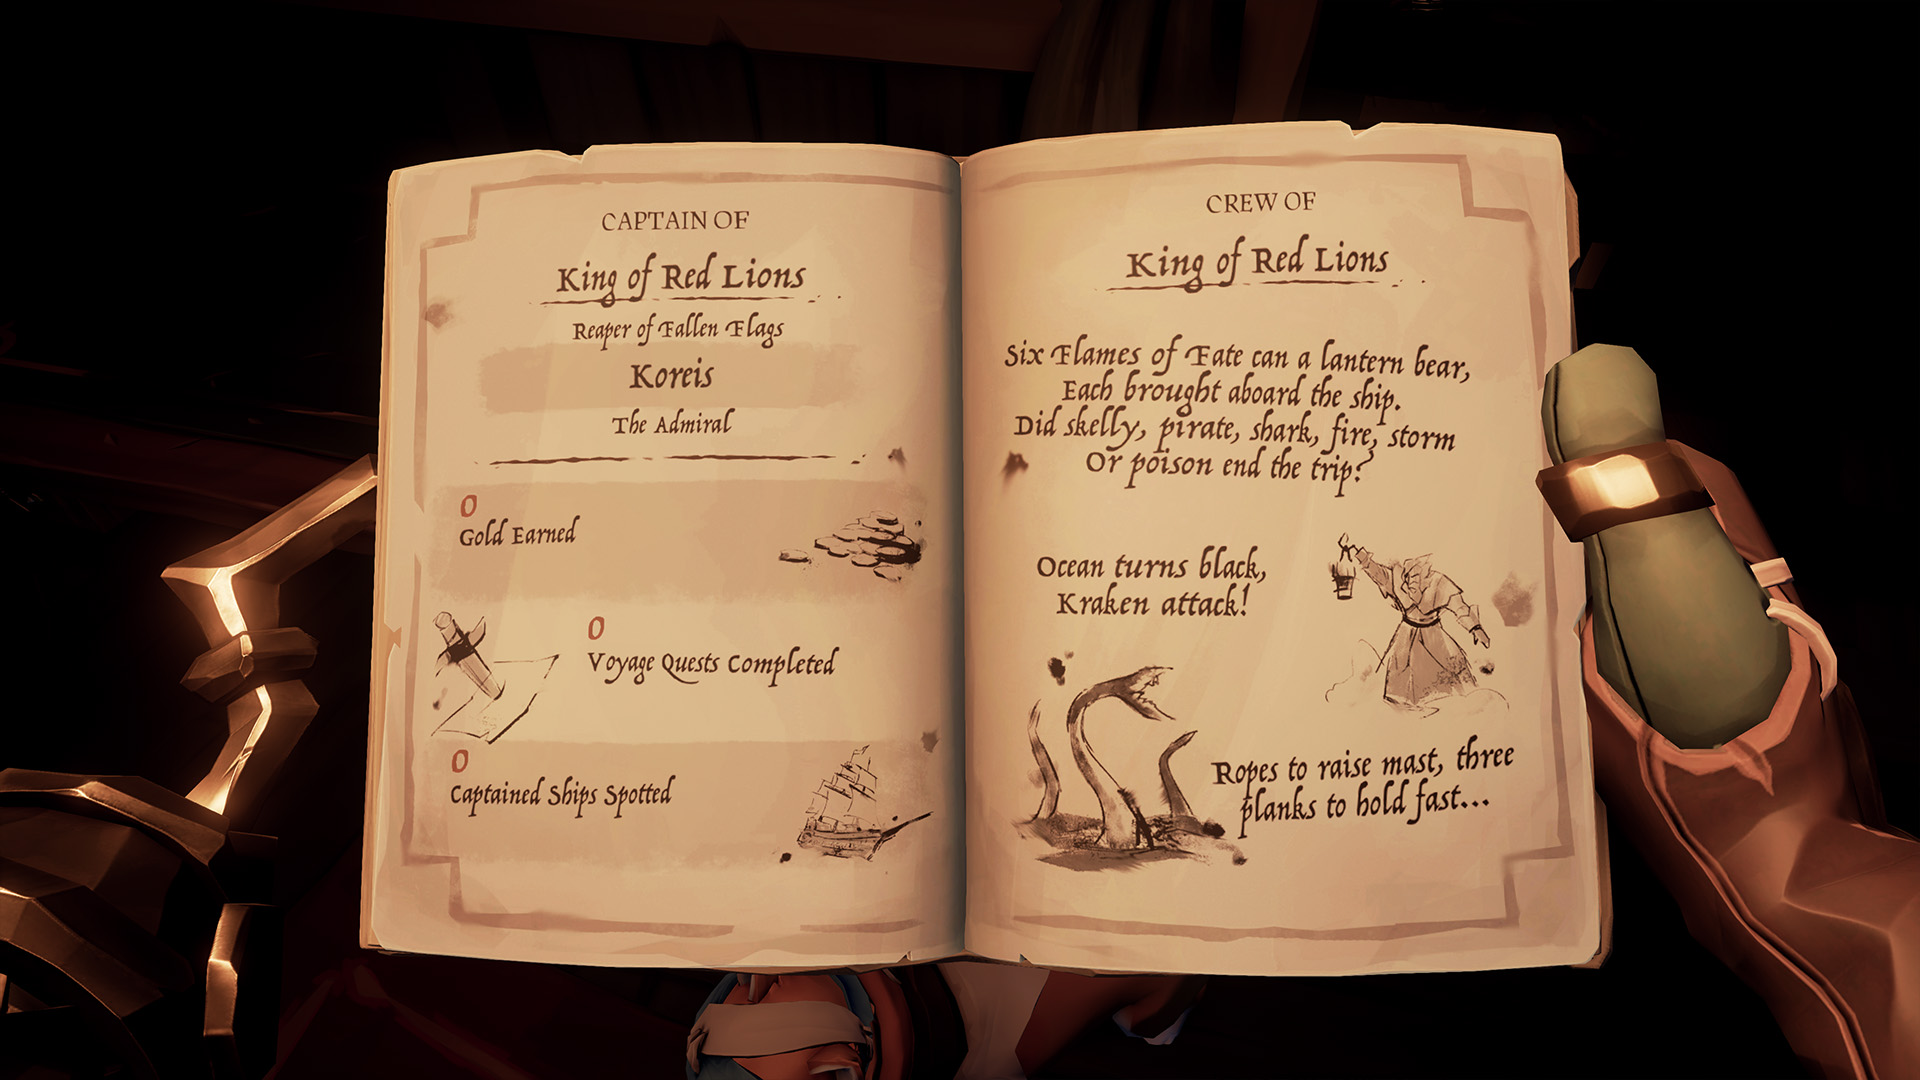 CAPTAIN OF
King of Red Lions
Reaper of Fallen Flags
Koreis
The Admiral
0
Gold Earned
0
Voyage Quests Completed
0
Captained Ships Spotted
CREW OF
King of Red Lions
Six Flames of Fate can a lantern bear,
Each brought aboard the ship.
Did skelly, pirate, shark, fire, storm
Or poison end the trip?
Ocean turns black,
Kraken attack!
Ropes to raise mast, three
planks to hold fast...